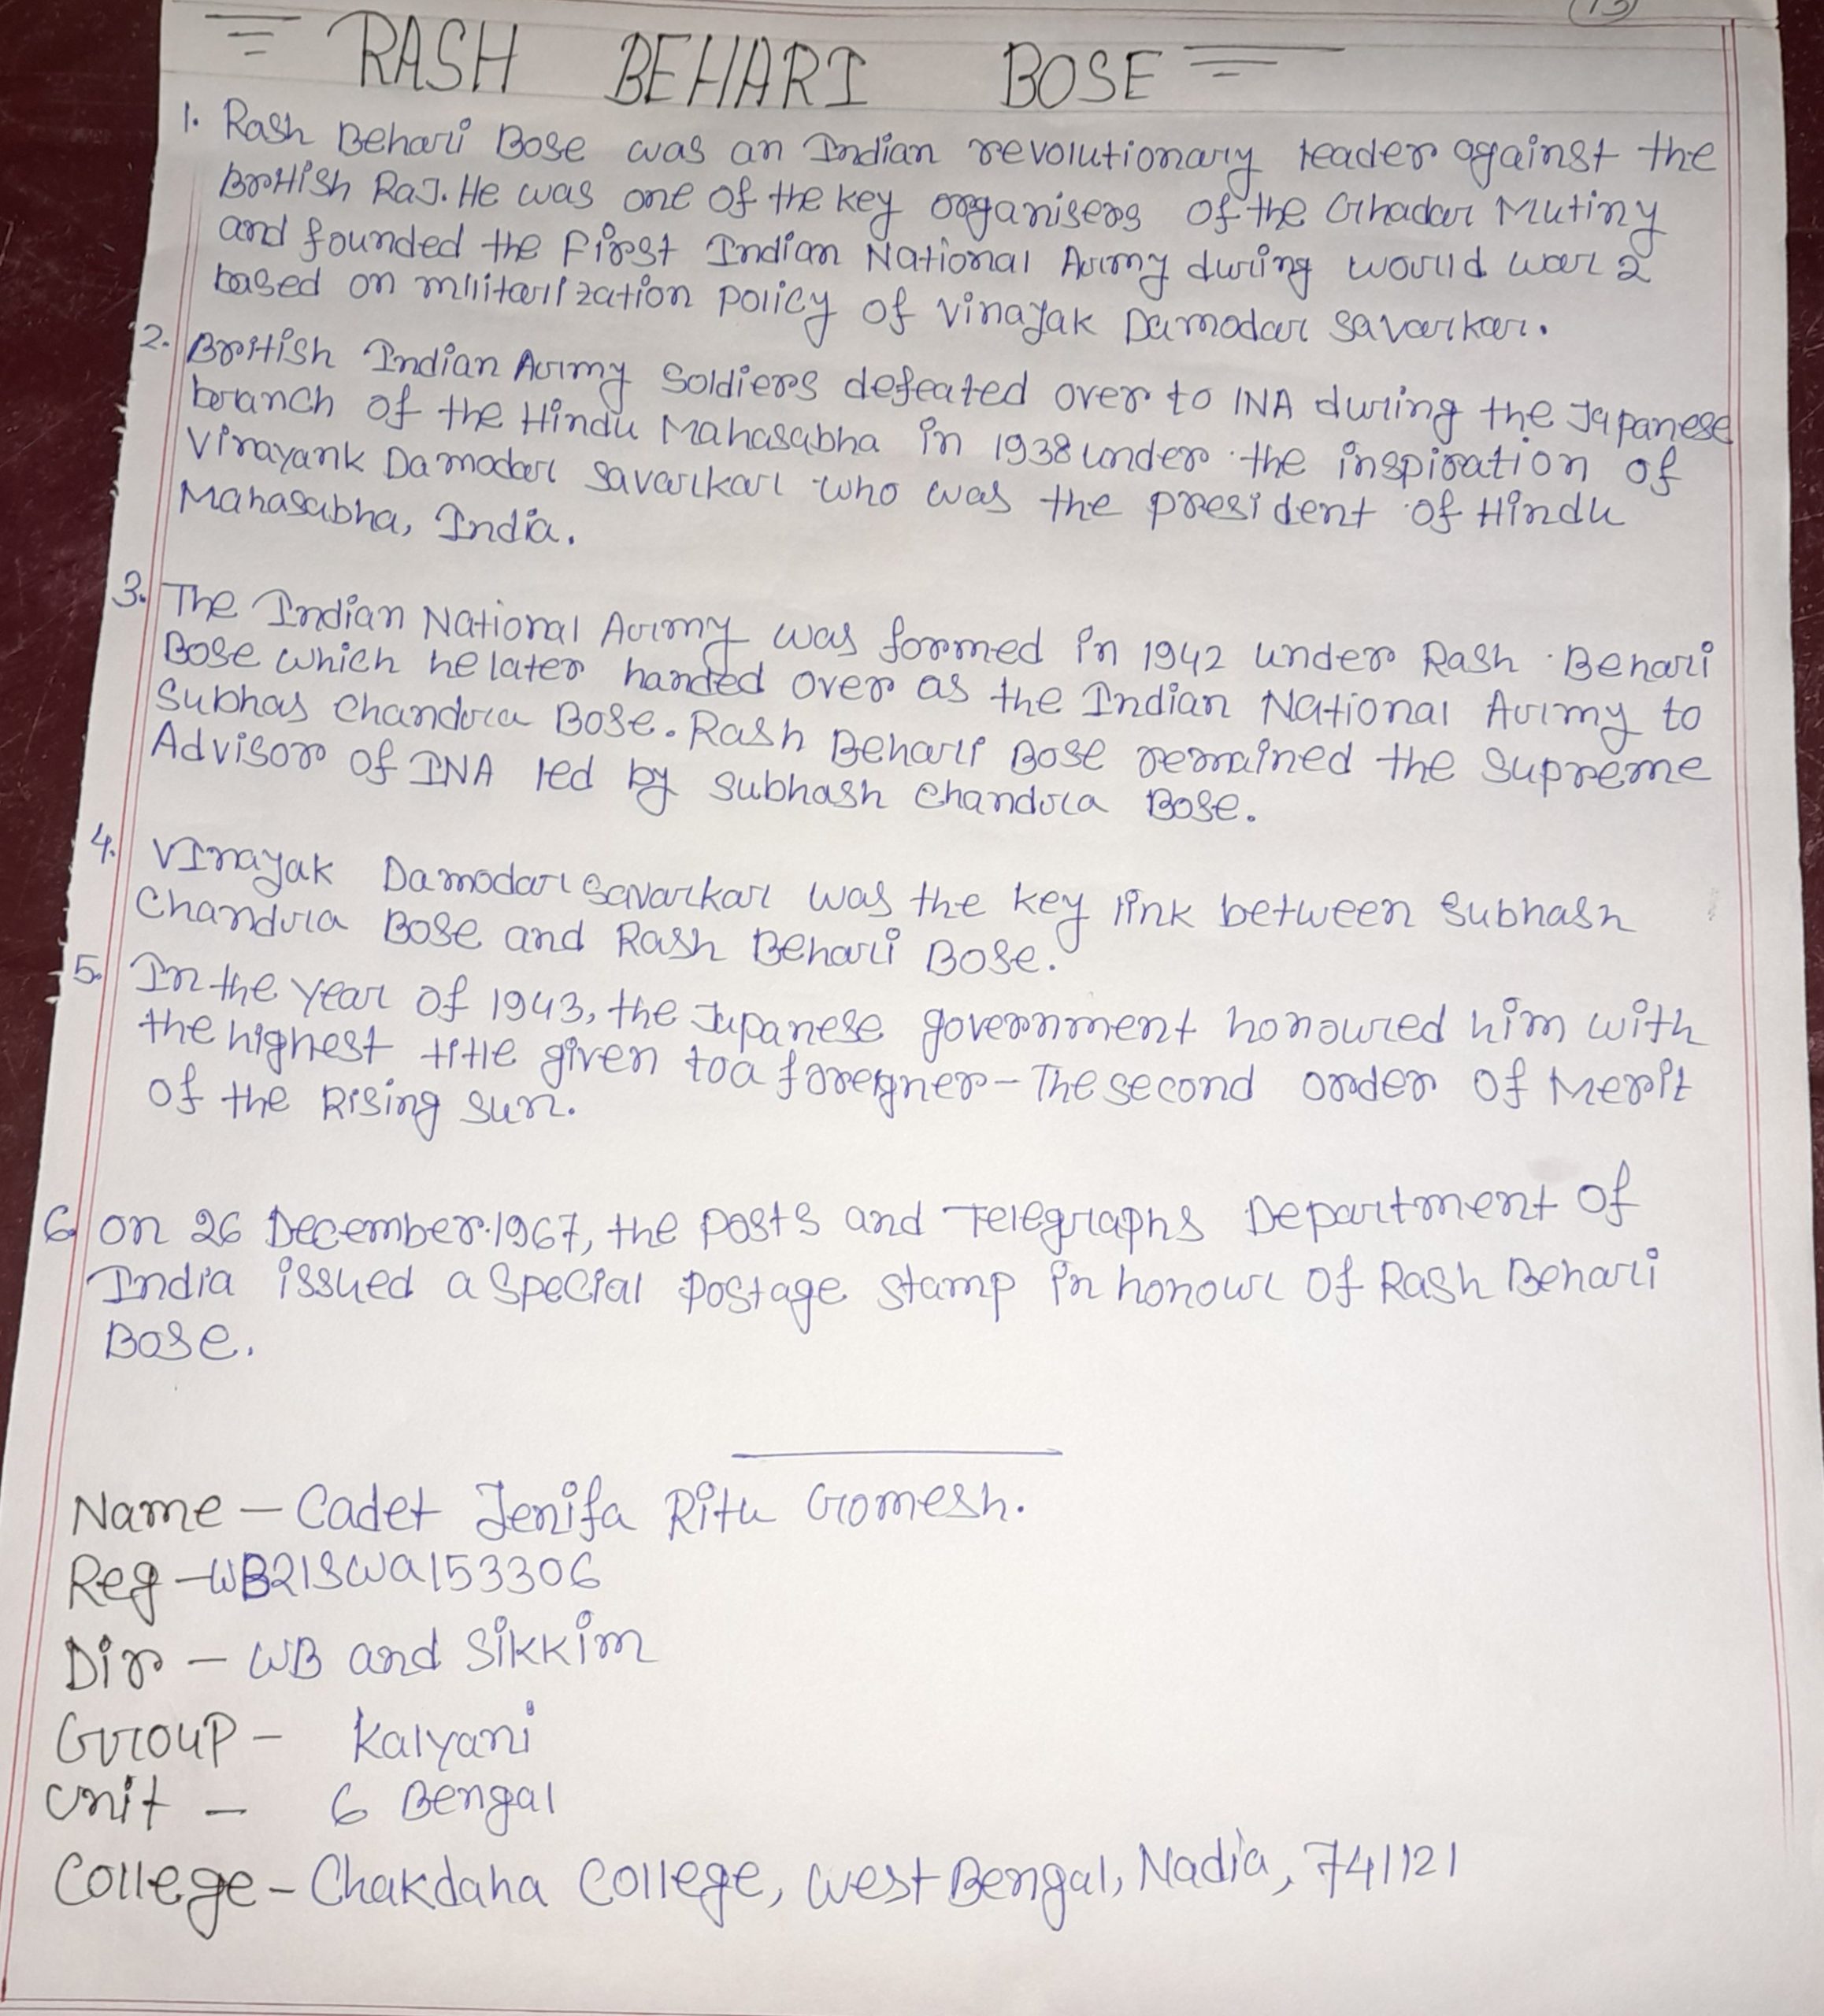 13
RASH BEHARI BOSE
1. Rash Behari Bose was an Indian revolutionary leader against the
British Raj. He was one of the key organisers of the Ghadar Mutiny
and founded the First Indian National Army during would war 2
based on militarization policy of Vinayak Damodar Savarkar.
2. British Indian Army Soldiers defeated over to INA during the Japanese
branch of the Hindu Mahasabha in 1938 under the inspiration of
Virayank Damodar Savarkar who was the president of Hindu
Mahasabha, India.
3. The Indian National Army was formed in 1942 under Rash Behari
Bose which he later handed over as the Indian National Army to
Subhas Chandra Bose. Rash Behari Bose remained the Supreme
Advisor of INA led by Subhash Chandra Bose.
4. Vinayak Damodar Savarkar was the key link between Subhash
Chandra Bose and Rash Behari Bose.
5. In the year of 1943, the Japanese government honoured him with
the highest title given to a foreigner - The second order of Merit
of the Rising Sun.
6. On 26 December 1967, the Posts and Telegraphs Department of
India issued a special Postage stamp in honour of Rash Behari
Bose.
Name - Cadet Jenifa Ritu Gomesh.
Reg - WB21SWA153306
Dir - WB and Sikkim
Group - Kalyani
Unit - 6 Bengal
College - Chakdaha College, West Bengal, Nadia, 741121